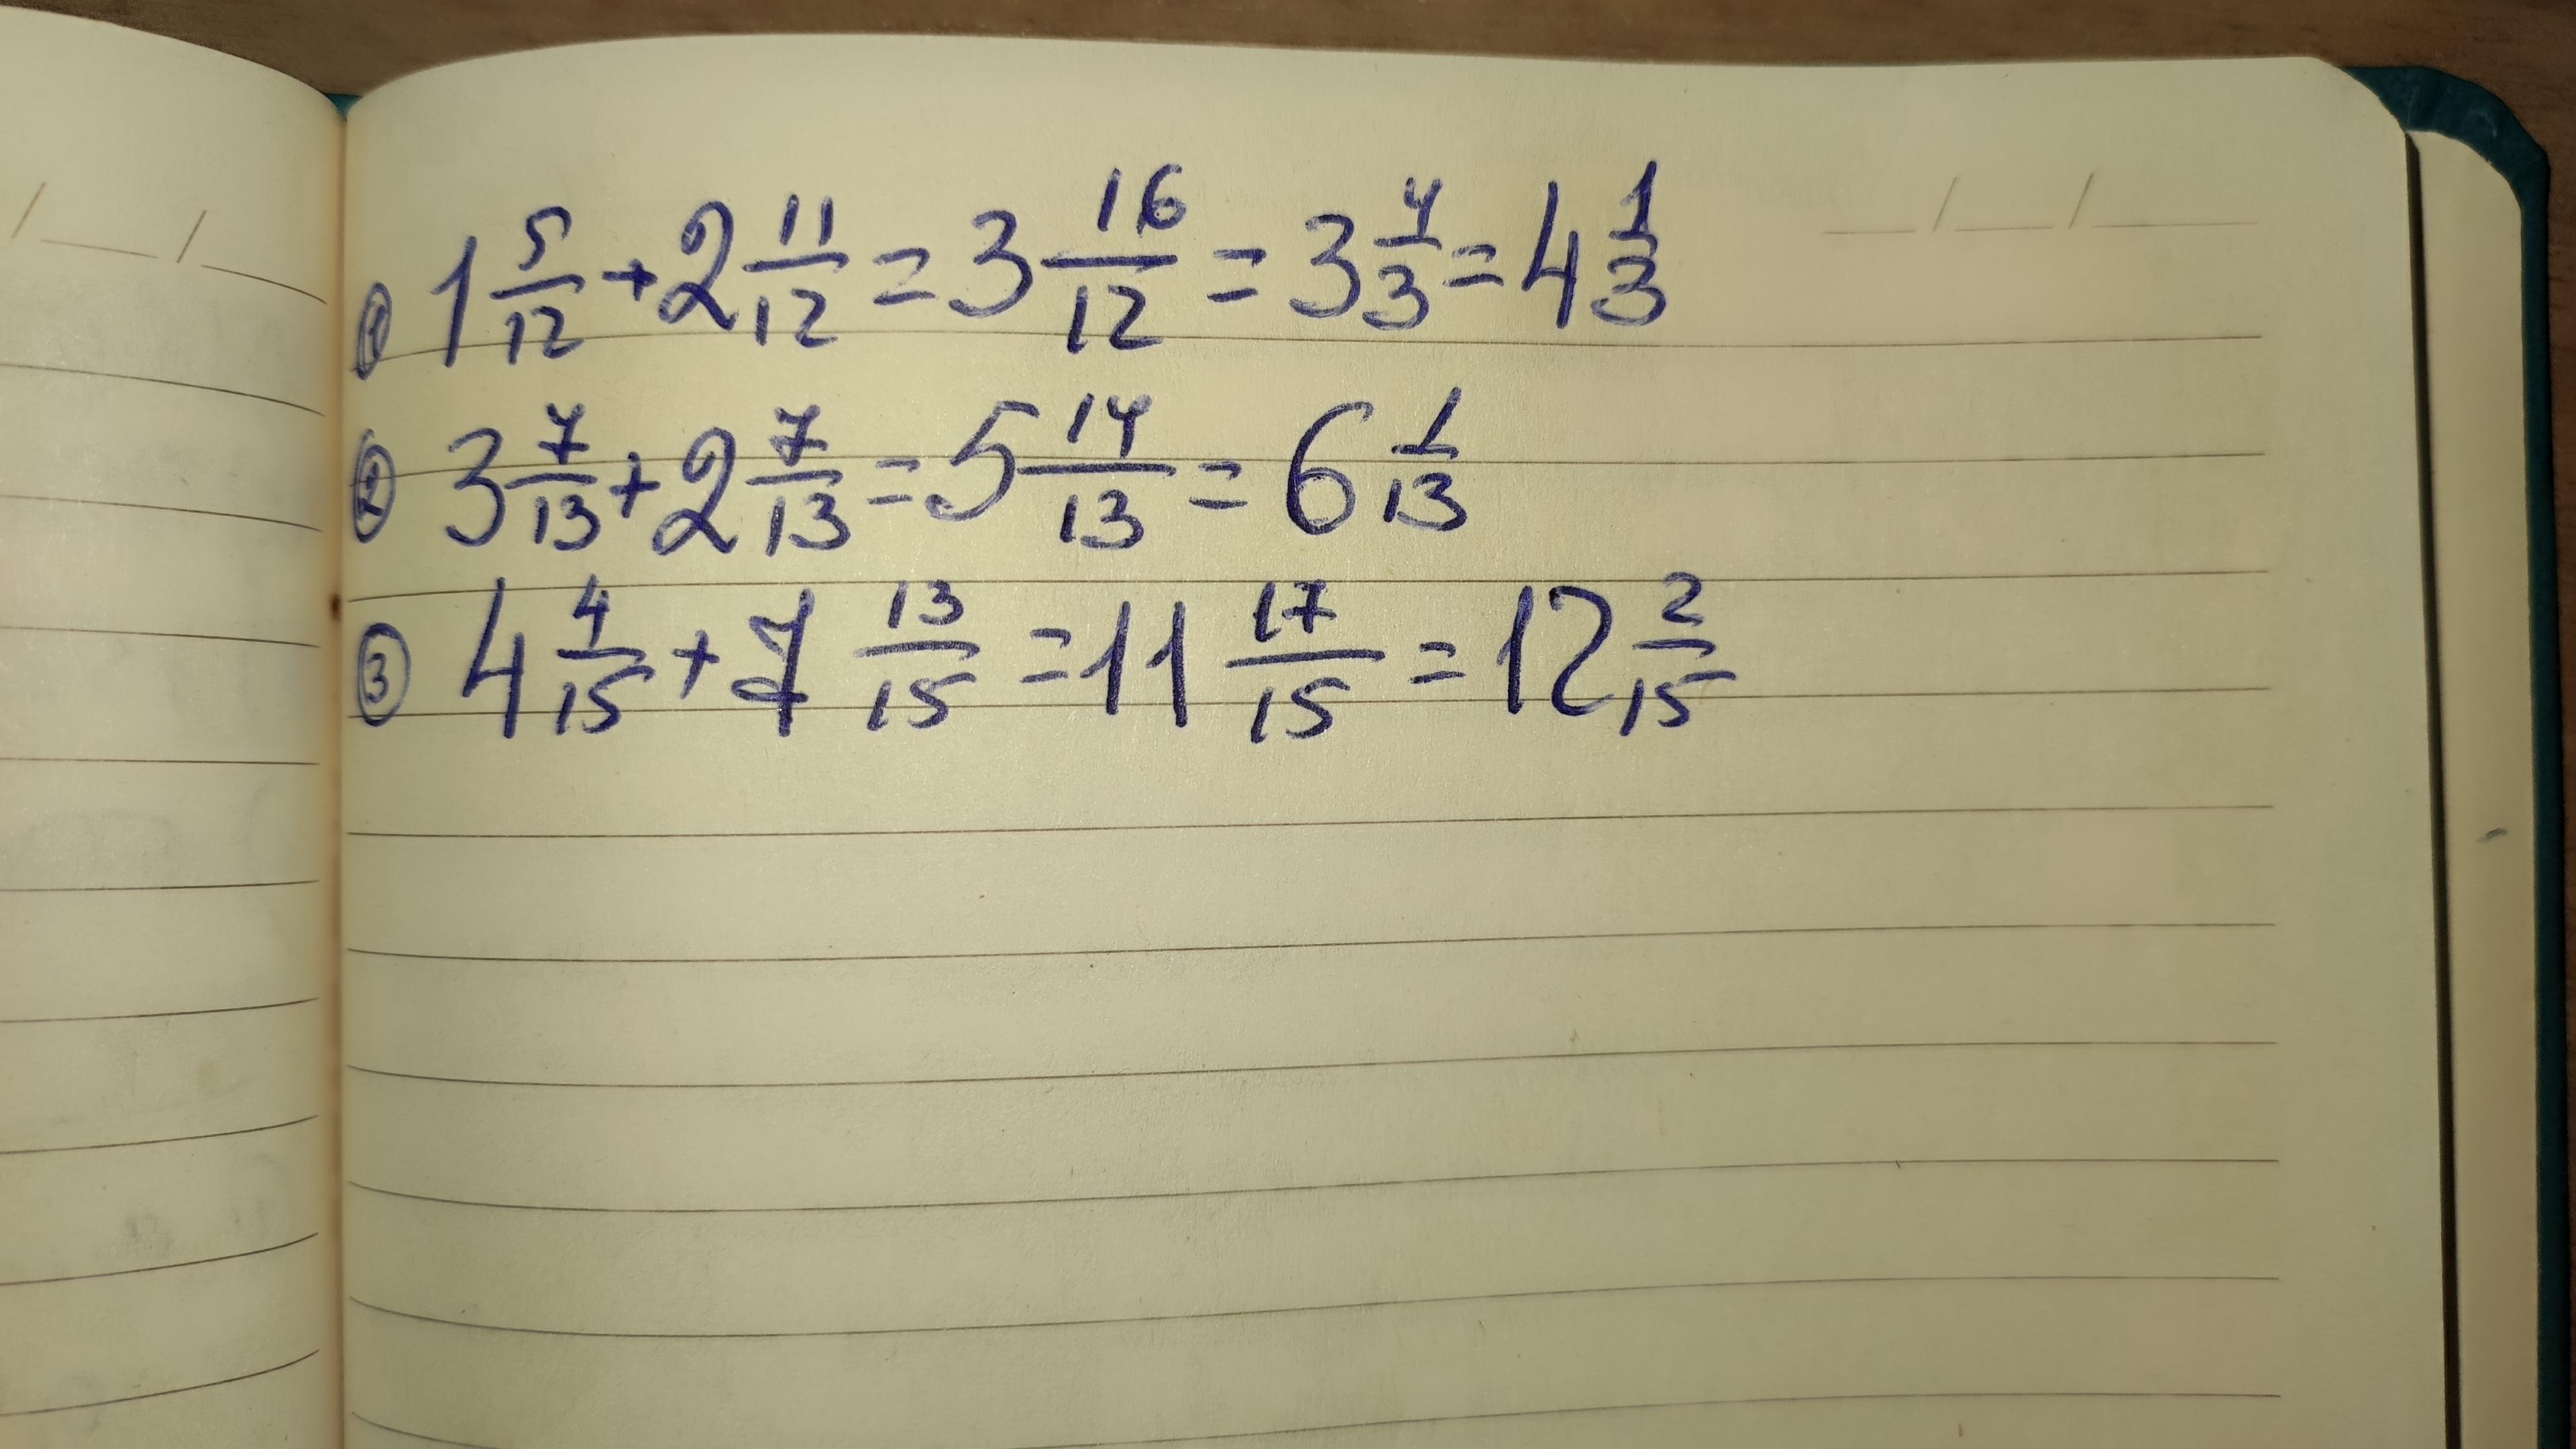 ① 1 5/12 + 2 11/12 = 3 16/12 = 3 4/3 = 4 1/3
② 3 7/13 + 2 7/13 = 5 14/13 = 6 1/13
③ 4 4/15 + 7 13/15 = 11 17/15 = 12 2/15